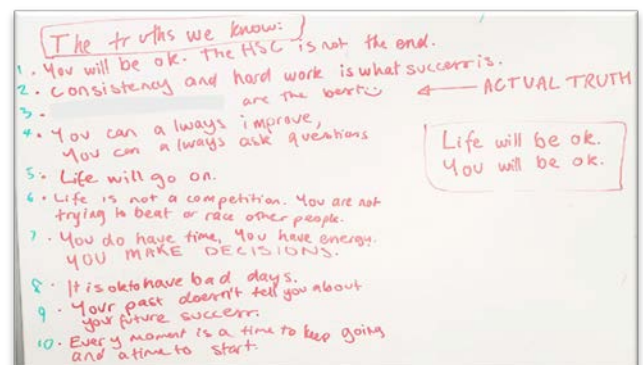 The truths we know:
1. You will be ok. The HSC is not the end.
2. Consistency and hard work is what success is.
3. are the best :) ← ACTUAL TRUTH
4. You can always improve,
You can always ask questions
5. Life will go on.
6. Life is not a competition. You are not
trying to beat or race other people.
7. You do have time, You have energy.
YOU MAKE DECISIONS.
8. It is ok to have bad days.
9. Your past doesn't tell you about
your future success.
10. Every moment is a time to keep going
and a time to start.
Life will be ok.
You will be ok.